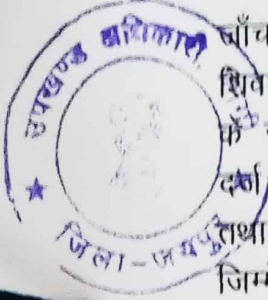 उपखण्ड अधिकारी
जिला - जयपुर
जाँच
शिव
के
दर्ज
तथा